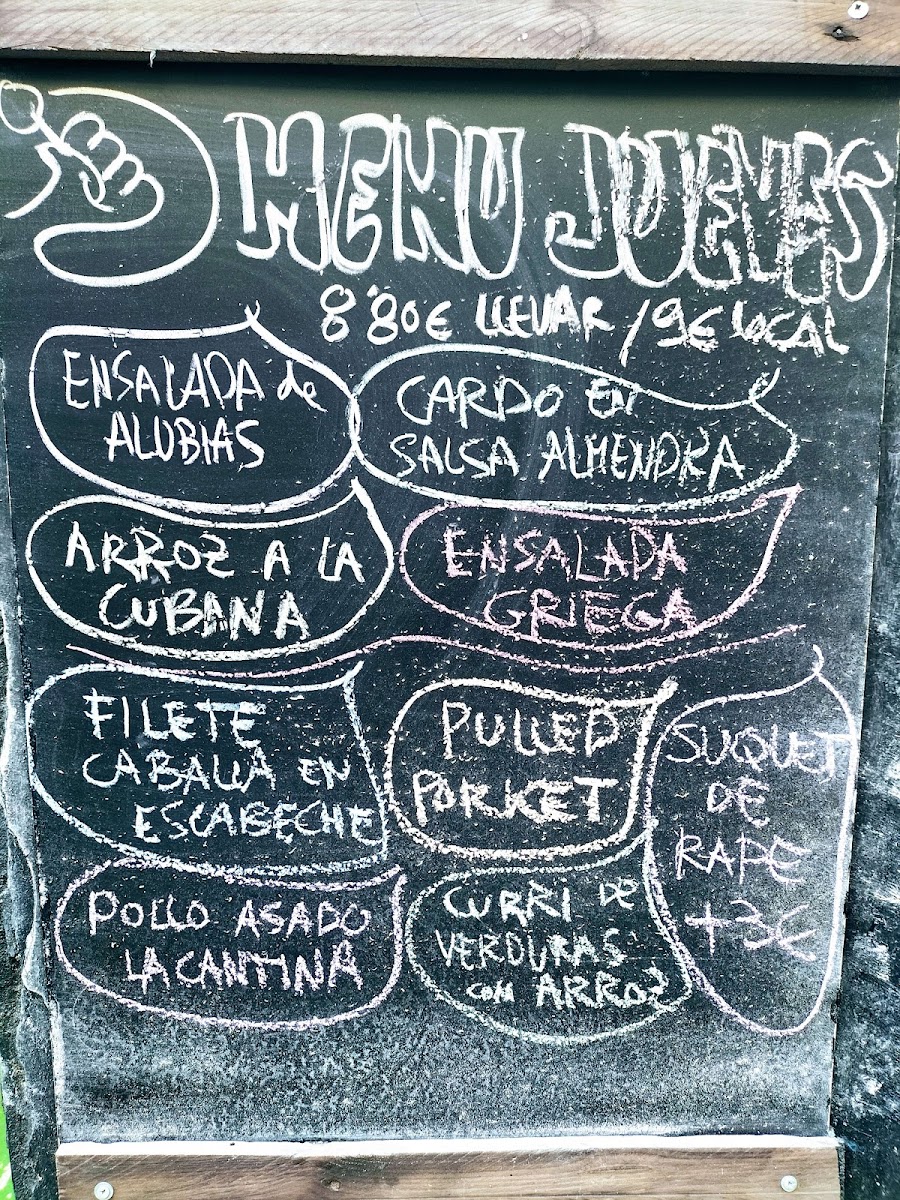 MENU JUEVES
8'80€ LLEVAR / 9€ LOCAL
ENSALADA de
ALUBIAS
CARDO EN
SALSA ALMENDRA
ARROZ A LA
CUBANA
ENSALADA
GRIEGA
FILETE
CABALLA EN
ESCABECHE
PULLED
PORKET
SUQUET
DE
RAPE
+3€
POLLO ASADO
LA CANTINA
CURRI DE
VERDURAS
CON ARROZ